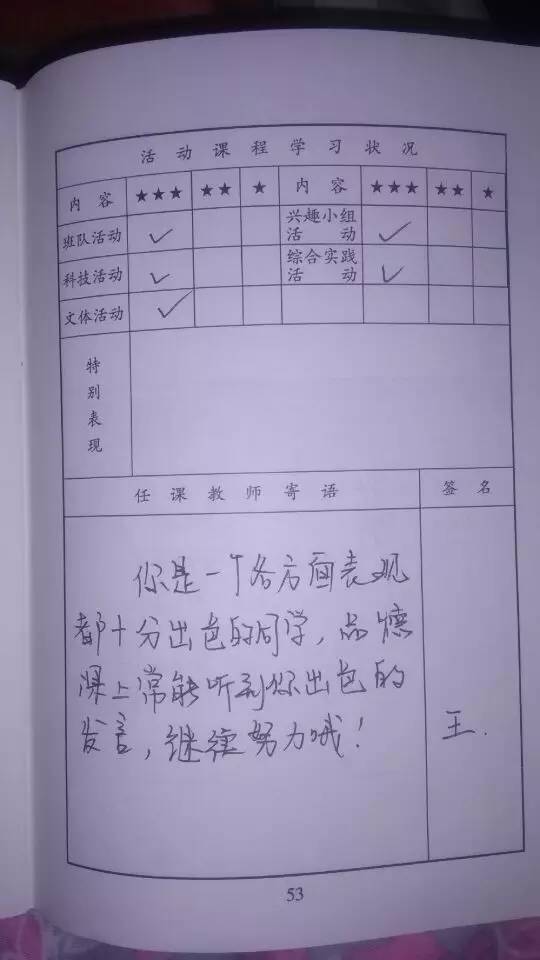 活动课程学习状况
内容 ★★★ ★★ ★ 内容 ★★★ ★★ ★
班队活动 ✓ 兴趣小组活动 ✓
科技活动 ✓ 综合实践活动 ✓
文体活动 ✓
特别表现
任课教师寄语 签名
你是一个各方面表现
都十分出色的同学，品德
课上常能听到你出色的
发言，继续努力哦！ 王.
53